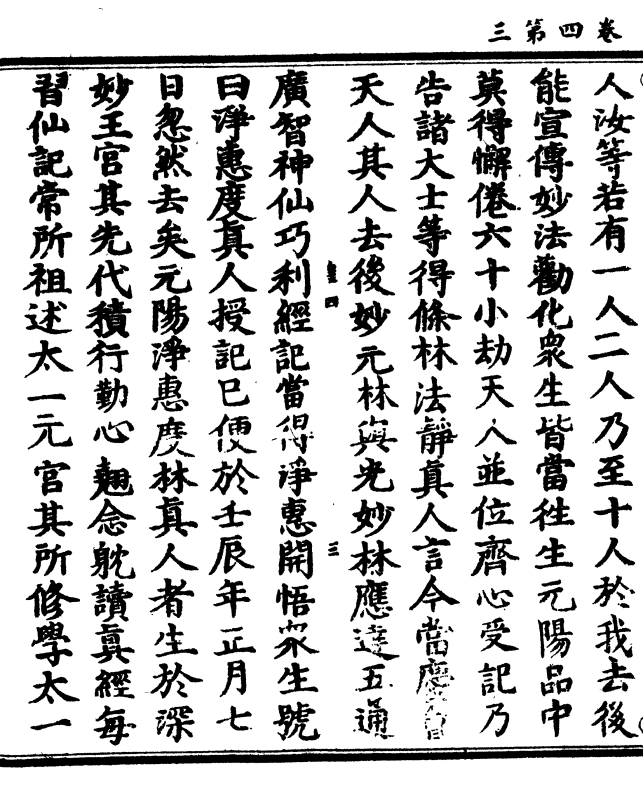 三第四卷
人汝等若有一人二人乃至十人於我去後
能宣傳妙法勸化衆生皆當徃生元陽品中
莫得懈倦六十小劫天人並位齊心受記乃
告諸大士等得條林法靜真人言今當度
天人其人去後妙元林與光妙林應達五通
四
三
廣智神仙巧利經記當得淨惠開悟衆生號
曰淨惠度真人授記已便於壬辰年正月七
日忽然去矣元陽淨惠度林真人者生於深
妙王官其先代積行勤心翹念躭讀真經每
習仙記常所祖述太一元官其所修學太一